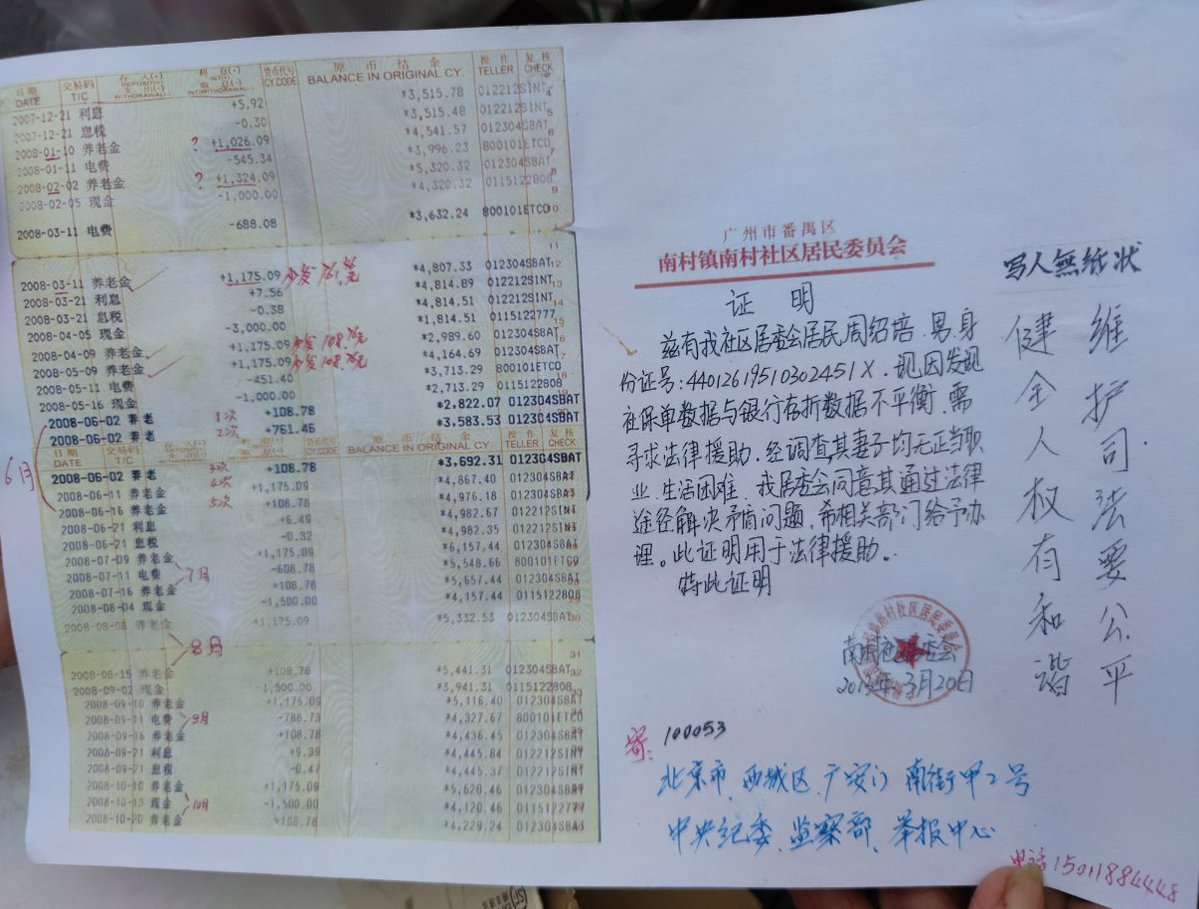 日期 交易码 存入(+) 利息(+) 货币代号 原币结余 操作 复核
DATE T/C DEPOSIT(+) CY.CODE BALANCE IN ORIGINAL CY. TELLER CHECK
2007-12-21 利息 +5.92 *3,515.78 012212SINT
2007-12-21 息税 -0.30 *3,515.48 012212SINT
2008-01-10 养老金 ? +1,026.09 *4,541.57 012304SBAT
2008-01-11 电费 -545.34 *3,996.23 800101ETCO
2008-02-02 养老金 ? +1,324.09 *5,320.32 012304SBAT
2008-02-05 现金 -1,000.00 *4,320.32 0115122808
2008-03-11 电费 -688.08 *3,632.24 800101ETCO
2008-03-11 养老金 +1,175.09 *4,807.33 012304SBAT
2008-03-21 利息 +7.56 *4,814.89 012212SINT
2008-03-21 息税 -0.38 *4,814.51 012212SINT
2008-04-05 现金 -3,000.00 *1,814.51 0115122777
2008-04-09 养老金 +1,175.09 少发108.78元 *2,989.60 012304SBAT
2008-05-09 养老金 +1,175.09 少发108.78元 *4,164.69 012304SBAT
2008-05-11 电费 -451.40 *3,713.29 800101ETCO
2008-05-16 现金 -1,000.00 *2,713.29 0115122808
2008-06-02 养老 1次 +108.78 *2,822.07 012304SBAT
2008-06-02 养老 2次 +761.46 *3,583.53 012304SBAT
日期 交易码 货币代号 原币结余 操作 复核
DATE T/C CY.CODE BALANCE IN ORIGINAL CY TELLER CHECK
6月
2008-06-02 养老 3次 +108.78 *3,692.31 012304SBAT
2008-06-11 养老金 4次 +1,175.09 *4,867.40 012304SBAT
2008-06-16 养老金 5次 +108.78 *4,976.18 012304SBAT
2008-06-21 利息 +6.49 *4,982.67 012212SINT
2008-06-21 息税 -0.32 *4,982.35 012212SINT
2008-07-09 养老金 +1,175.09 *6,157.44 012304SBAT
2008-07-11 电费 7月 -608.78 *5,548.66 800101ETCO
2008-07-16 养老金 +108.78 *5,657.44 012304SBAT
2008-08-04 现金 -1,500.00 *4,157.44 0115122808
2008-08-08 养老金 +1,175.09 *5,332.53 012304SBAT
8月
2008-08-15 养老金 +108.78 *5,441.31 012304SBAT
2008-09-02 现金 -1,500.00 *3,941.31 0115122808
2008-09-10 养老金 +1,175.09 *5,116.40 012304SBAT
2008-09-11 电费 9月 -788.73 *4,327.67 800101ETCO
2008-09-16 养老金 +108.78 *4,436.45 012304SBAT
2008-09-21 利息 +9.39 *4,445.84 012212SINT
2008-09-21 息税 -0.47 *4,445.37 012212SINT
2008-10-10 养老金 +1,175.09 *5,620.46 012304SBAT
2008-10-15 现金 10月 -1,500.00 *4,120.46 0115122777
2008-10-20 养老金 +108.78 *4,229.24 012304SBAT
广州市番禺区
南村镇南村社区居民委员会
证 明
兹有我社区居委会居民周绍培,男,身
份证号:44012619510302451X,现因发现
社保单数据与银行存折数据不平衡,需
寻求法律援助,经调查其妻子均无正当职
业,生活困难,我居委会同意其通过法律
途径解决矛盾问题,希相关部门给予办
理。此证明用于法律援助。
特此证明
南村社区居委会
2013年3月20日
写人無纸状
维护司法要公平
健全人权有和谐
寄:100053
北京市、西城区、广安门南街甲2号
中央纪委、监察部、举报中心
电话15011884448